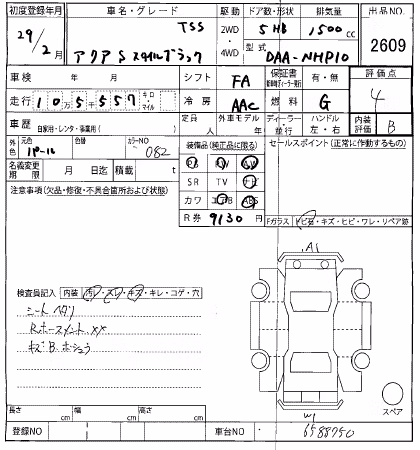 初度登録年月 車名・グレード 駆動 ドア数・形状 排気量 出品NO.
29/2月 TSS 2WD 5 HB 1500cc 2609
アクア S スタイルブラック 4WD 型式 DAA-NHP10
車検 年 月 シフト FA 保証書 有・無 評価点
走行 105557 キロ・マイル 冷房 AAC 燃料 G 4
車歴 自家用・レンタ・事業用( ) 定員 人 外車モデル 年 ディーラー・並行 ハンドル 左・右 内装評価 B
外色 元色 パール 色替 カラーNO 082 装備品(純正品に限る) セールスポイント(正常に作動するもの)
名義変更期限 月 日迄 積載 t PS PW AW
注意事項(欠品・修復・不具合箇所および状態) SR TV ナビ
カワ エアB ABS
R券 9130円
Fガラス トビ石・キズ・ヒビ・ワレ・リペア跡
A1
検査員記入 内装 汚レ・スレ・キズ・キレ・コゲ・穴
シートヘタリ
Rホースメント XX
キズ B ホシュウ
スペア
W1
長さ cm 幅 cm 高さ cm
登録NO 車台NO 6588750